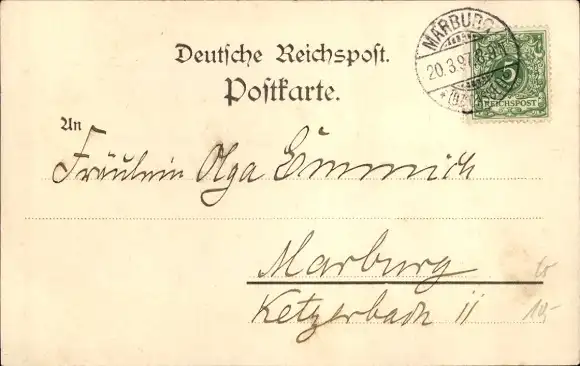 Deutsche Reichspost.
Postkarte.
MARBURG
20.3.97. 8-9N
REICHSPOST
5
An
Fräulein Olga Emmrich
Marburg
Ketzerbach 11